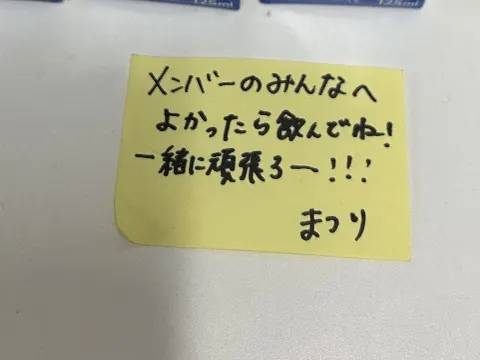 125ml
125ml
メンバーのみんなへ
よかったら飲んでね!
一緒に頑張ろー!!!
まつり